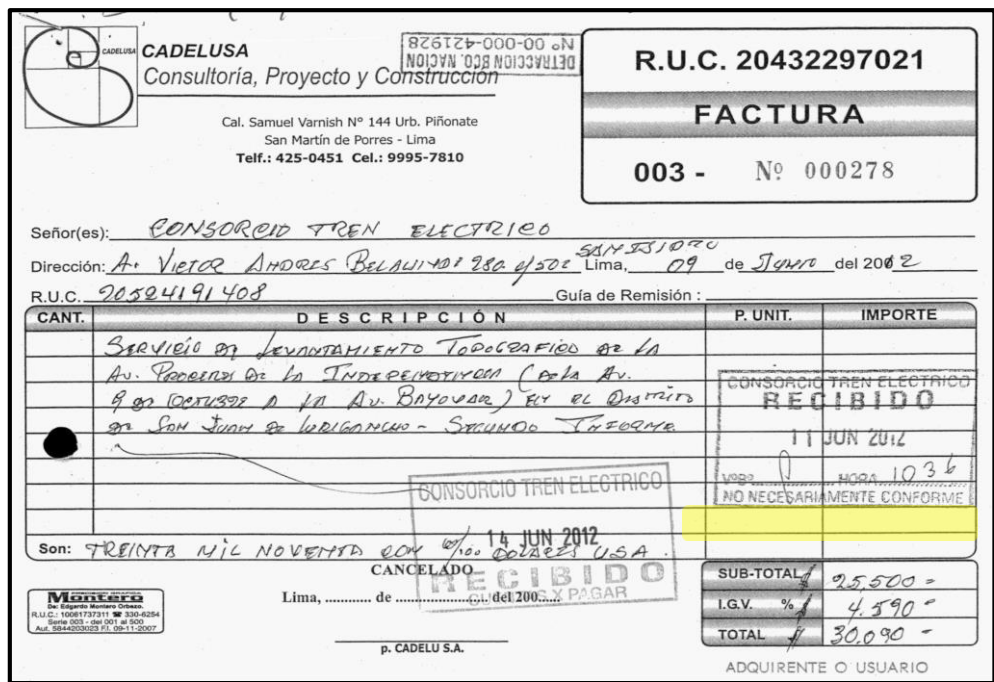 CADELUSA
CADELUSA
Consultoría, Proyecto y Construcción
DETRACCION BCO. NACION
Nº 00-000-421928
Cal. Samuel Varnish Nº 144 Urb. Piñonate
San Martín de Porres - Lima
Telf.: 425-0451 Cel.: 9995-7810
R.U.C. 20432297021
FACTURA
003 - Nº 000278
Señor(es): CONSORCIO TREN ELECTRICO
Dirección: A. VICTOR ANDRES BELAUNDE 280 of 502 SAN ISIDRO Lima, 09 de JUNIO del 2012
R.U.C. 20524191408 Guía de Remisión :
CANT. DESCRIPCIÓN P. UNIT. IMPORTE
SERVICIO DE LEVANTAMIENTO TOPOGRAFICO DE LA
AV. PROCERES DE LA INDEPENDENCIA ( DE LA AV.
9 DE OCTUBRE A LA AV. BAYOVAR) EN EL DISTRITO
DE SAN JUAN DE LURIGANCHO - SEGUNDO INFORME
CONSORCIO TREN ELECTRICO
RECIBIDO
11 JUN 2012
VºBº HORA 1036
NO NECESARIAMENTE CONFORME
CONSORCIO TREN ELECTRICO
14 JUN 2012
RECIBIDO
X PAGAR
Son: TREINTA MIL NOVENTA CON 00/100 DOLARES USA.
CANCELADO
Lima, ............ de ........................ del 200......
p. CADELU S.A.
Montero
De: Edgardo Montero Orbezo.
R.U.C.: 10061737311 ☎ 330-6254
Serie 003 - del 001 al 500
Aut. 5844203023 F.I. 09-11-2007
SUB-TOTAL 25,500 =
I.G.V. % 4.590 =
TOTAL 30.090 -
ADQUIRENTE O USUARIO